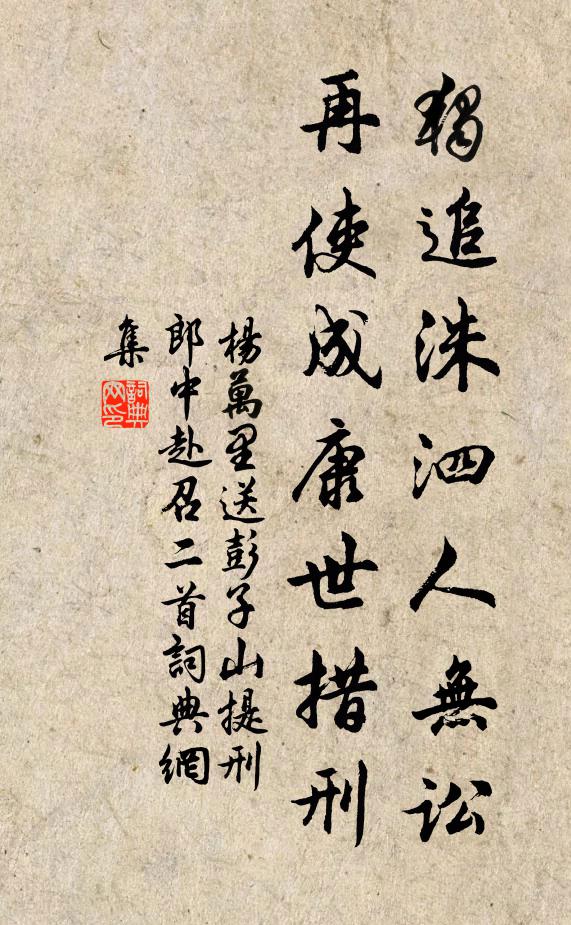 獨追洙泗人無訟
再使成康世措刑
楊萬里送彭子山提刑
郎中赴召二首詞典網
集
詞典
网印